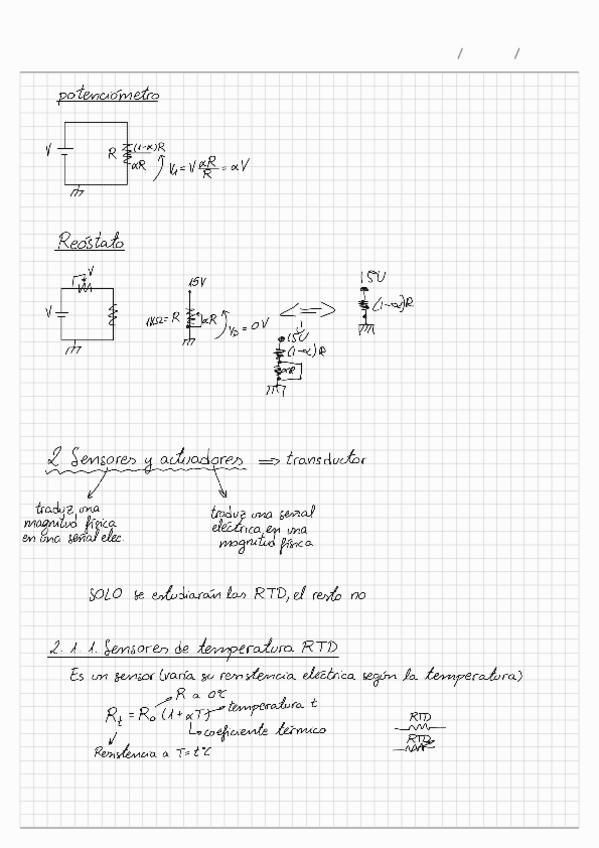 / /
potenciómetro
V R (1-α)R
αR V₁ = V αR/R = αV
Reóstato
V
V
15V
1KΩ = R αR V₀ = 0V
<=>
15V
(1-α)R
αR
15V
(1-α)R
2 Sensores y actuadores => transductor
traduz una
magnitud física
en una señal elec.
traduz una señal
eléctrica en una
magnitud física
SOLO se estudiarán las RTD, el resto no
2.1.1. Sensores de temperatura RTD
Es un sensor (varía su resistencia eléctrica según la temperatura)
R a 0ºC
Rt = R₀ (1+αT) temperatura t
coeficiente térmico
Resistencia a T=tºC
RTD
RTD